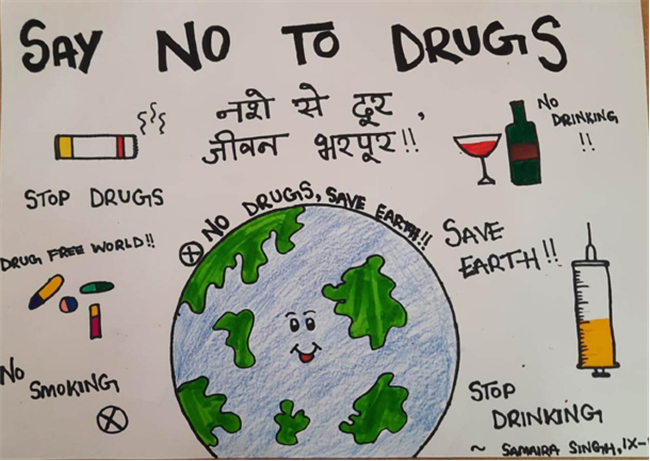 SAY NO TO DRUGS
नशे से दूर,
जीवन भरपूर!!
NO
DRINKING
!!
STOP DRUGS
⊗ NO DRUGS, SAVE EARTH!!
SAVE
EARTH!!
DRUG FREE WORLD!!
NO
SMOKING
STOP
DRINKING
~ SAMAIRA SINGH, IX-